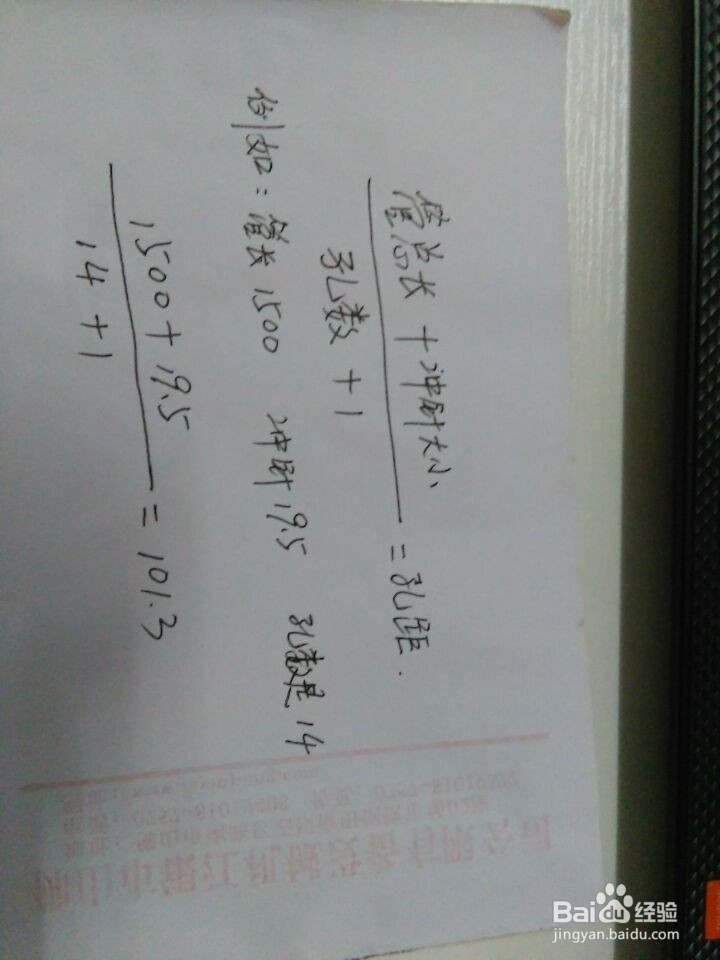 管总长 + 冲时大小
孔数 + 1
= 孔距.
例如: 管长 1500 冲时 19.5 孔数是 14
1500 + 19.5
14 + 1
= 101.3
Bai du 经验
jingyan.baidu.com